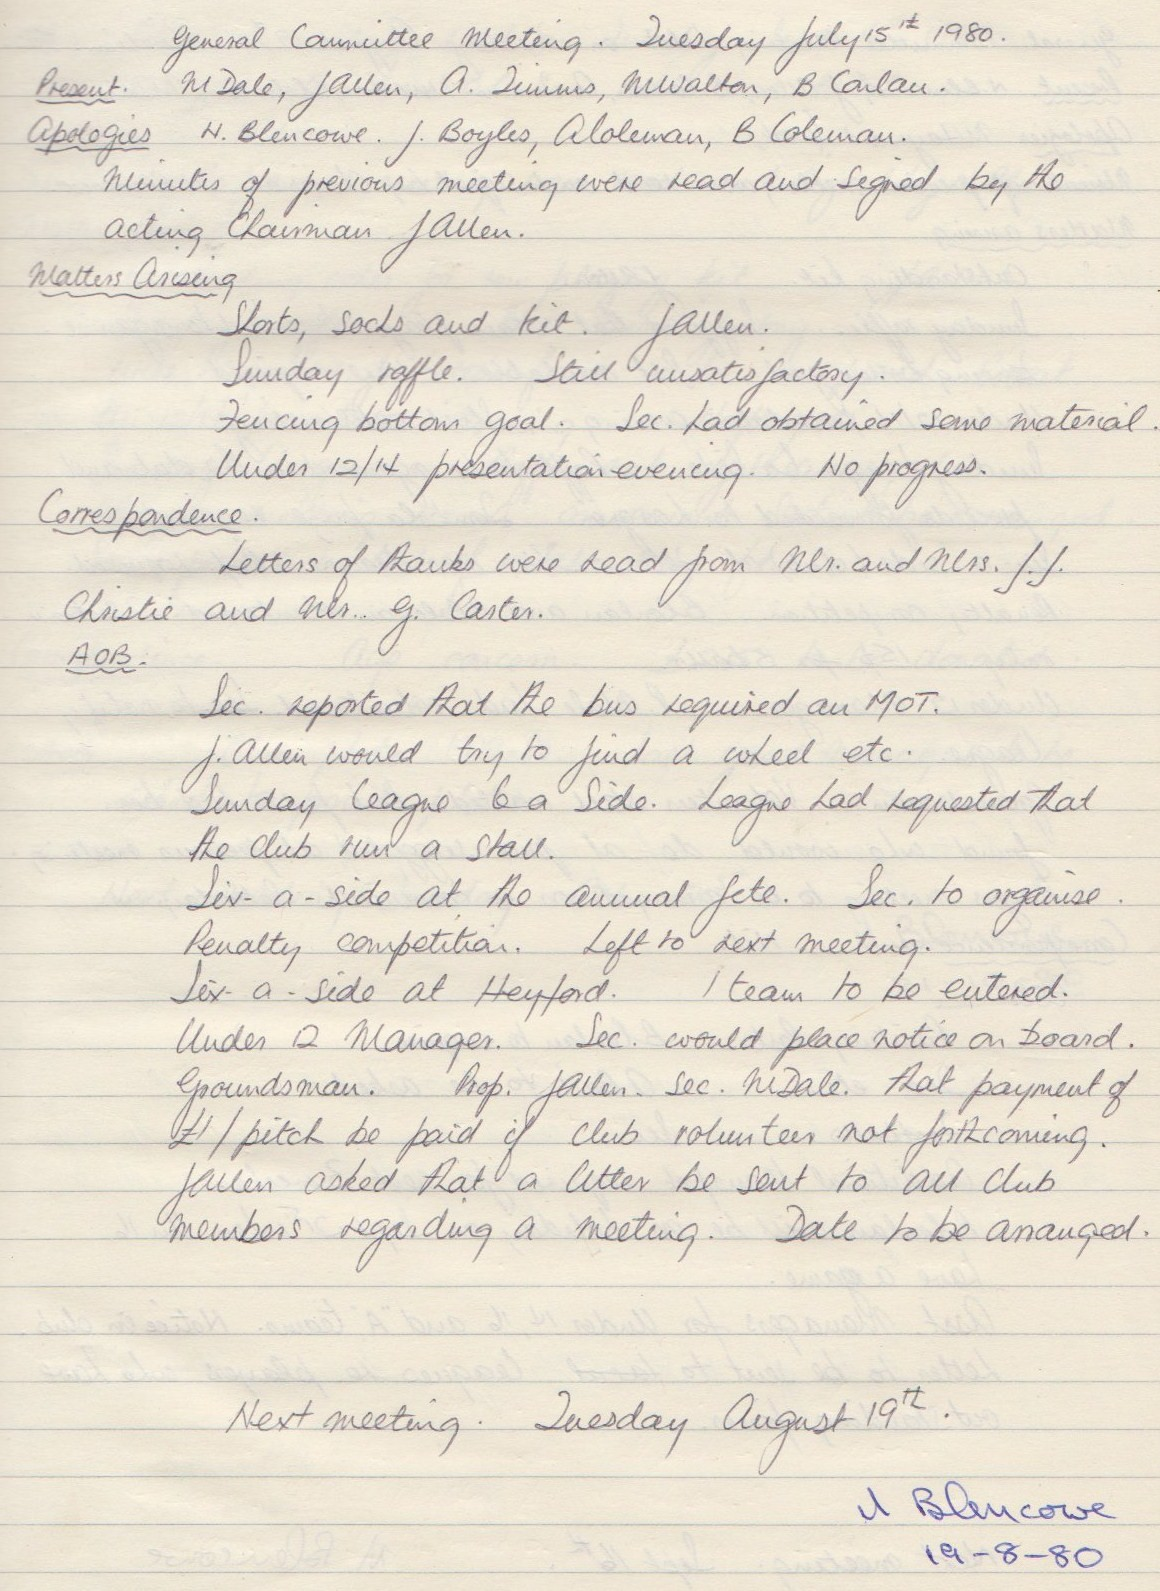 General Committee Meeting. Tuesday July 15th 1980.
Present. M Dale, J Allen, A. Timms, M Walton, B Conlan.
Apologies N. Blencowe. J. Boyles, A Coleman, B Coleman.
Minutes of previous meeting were read and signed by the
acting Chairman J Allen.
Matters Arising
Shorts, socks and kit. J Allen.
Sunday raffle. Still unsatisfactory.
Fencing bottom goal. Sec. had obtained some material.
Under 12/14 presentation evening. No progress.
Correspondence.
Letters of thanks were read from Mr. and Mrs. J.J.
Christie and Mr. G. Carter.
AOB.
Sec. reported that the bus required an MOT.
J. Allen would try to find a wheel etc.
Sunday league 6 a side. League had requested that
the club run a stall.
Six-a-side at the annual fete. Sec. to organise.
Penalty competition. Left to next meeting.
Six-a-side at Heyford. 1 team to be entered.
Under 12 Manager. Sec. would place notice on board.
Groundsman. Prop. J Allen. Sec. M Dale. that payment of
£1/pitch be paid if club volunteer not forthcoming.
J Allen asked that a letter be sent to all club
members regarding a meeting. Date to be arranged.
Next meeting. Tuesday August 19th.
N Blencowe
19-8-80